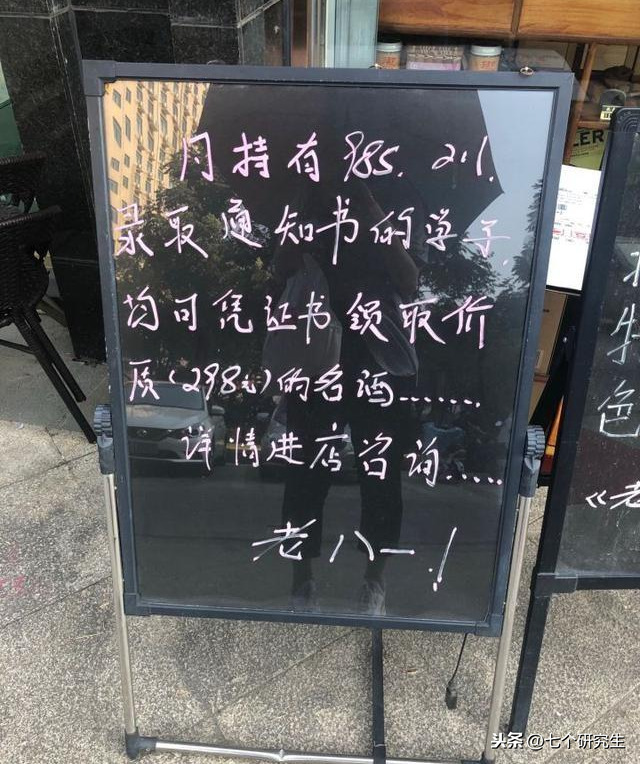 凡持有985. 211.
录取通知书的学子
均可凭证书领取价
质(298元)的名酒.......
详情进店咨询.....
老八一!
特
色
《老
头条 @七个研究生